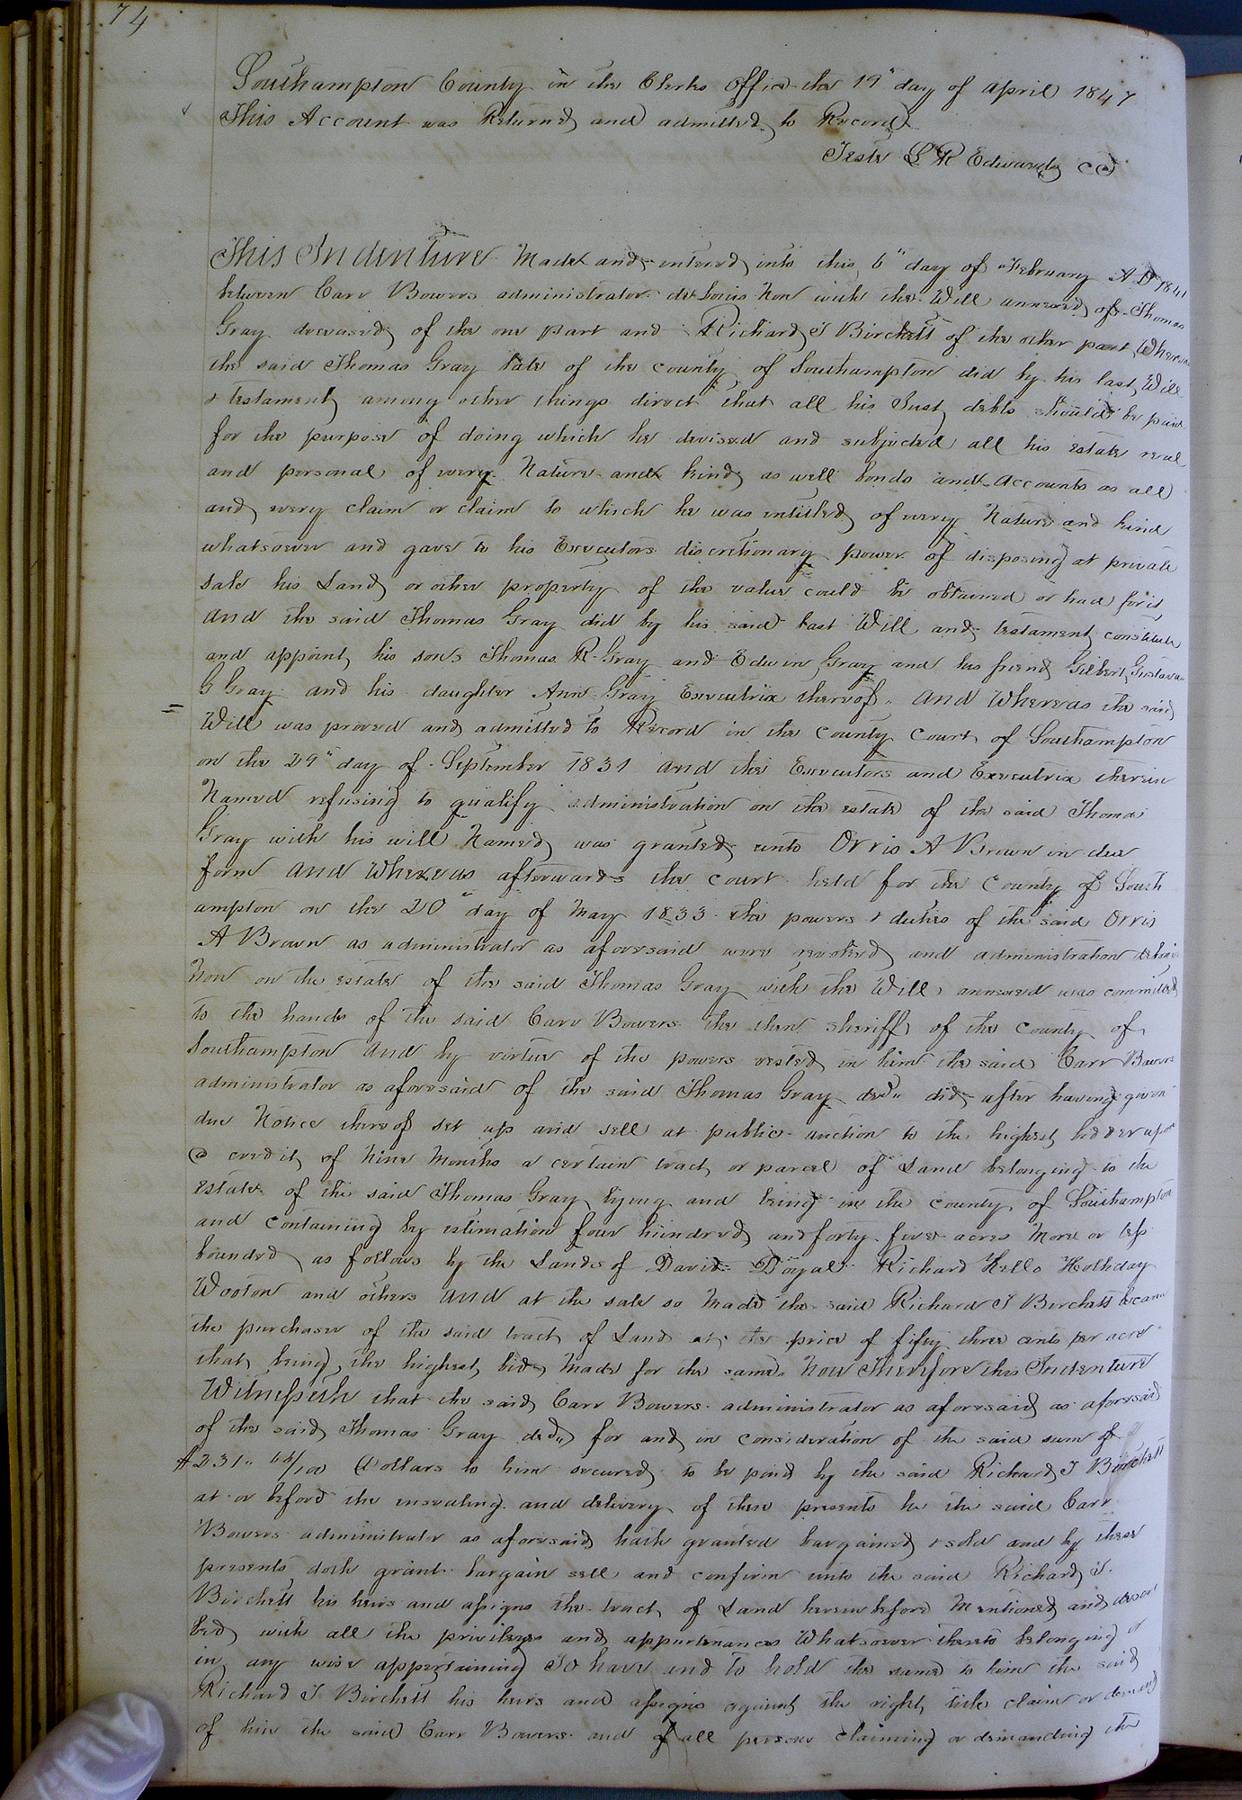 74
Southampton County in the Clerks Office the 19" day of April 1847
This Account was Returned and admitted to Record
Teste L R Edwards CC
This Indenture Made and entered into this 6" day of February A.D 1841
between Carr Bowers administrator de bonis Non with the Will annexed of Thomas
Gray deceased of the one part and Richard J Birchett of the other part Whereas
the said Thomas Gray late of the county of Southampton did by his last Will
& testament among other things direct that all his Just debts should be paid
for the purpose of doing which he devised and subjected all his estate real
and personal of every Nature and kind as well bonds and Accounts as all
and every claim or claim to which he was entitled of every Nature and kind
whatsoever and gave to his Executors discretionary power of disposing at private
sale his Land or other property if the value could be obtained or had for it,
and the said Thomas Gray did by his said last Will and testament constitute
and appoint his sons Thomas R Gray and Edwin Gray and his friend Gilbert
G Gray and his daughter Ann Gray Executrix thereof. And Whereas the said
Will was proved and admitted to Record in the County Court of Southampton
on the 29" day of September 1831 and the Executors and Executrix therein
Named refusing to qualify administration on the estate of the said Thomas
Gray with his will Named was granted unto Orris A Brown in due
form and Whereas afterwards the court held for the County of South
ampton on the 20" day of May 1833 the powers & duties of the said Orris
A Brown as administrator as aforesaid were revoked and administration
Non on the estate of the said Thomas Gray with the Will annexed was committed
to the hands of the said Carr Bowers the then sheriff of the county of
Southampton and by virtue of the powers vested in him the said Carr Bowers
administrator as aforesaid of the said Thomas Gray decd" did after having given
due Notice thereof set up and sell at public auction to the highest bidder upon
a credit of Nine Months a certain tract or parcel of Land belonging to the
Estate of the said Thomas Gray lying and being in the county of Southampton
and containing by estimation four hundred and forty acres More or less
bounded as follows by the Lands of David Doyal Richard Kello Holliday
Wooton and others and at the sale so Made the said Richard J Birchett became
the purchaser of the said tract of Land at the price of fifty three cents per acre
that being the highest bid Made for the same. Now Therefore this Indenture
Witnesseth that the said Carr Bowers administrator as aforesaid as aforesaid
of the said Thomas Gray decd" for and in consideration of the said sum of
$231" /100 Dollars to him secured to be paid by the said Richard J Birchett
at or before the ensealing and delivery of these presents he the said Carr
Bowers administrator as aforesaid hath granted bargained & sold and by these
presents doth grant bargain sell and confirm unto the said Richard J.
Birchett his heirs and assigns the tract of Land hereinbefore Mentioned and descri
bed with all the privileges and appurtenances Whatsoever thereto belonging or
in any wise appertaining To have and to hold the same to him the said
Richard J Birchett his heirs and assigns against the right title claim or demand
of him the said Carr Bowers and of all persons claiming or demanding the